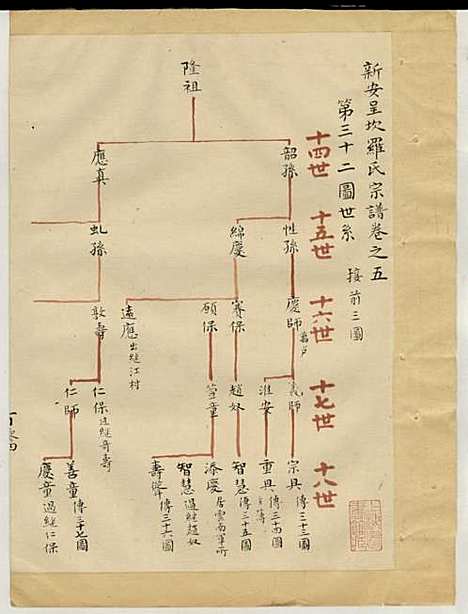 新安呈坎羅氏宗譜卷之五
第三十二圖世系
接前三圖
十四世
十五世
十六世
十七世
十八世
隆祖
韶孫
應真
性孫
綿慶
虬孫
慶師
賽保
頎保
遠應 出繼江村
敦壽
義師
淮安
趙奴
萱童
仁保 過繼奇壽
仁師
宗具 傳三十三圖
重具 傳三十四圖
智慧 傳三十五圖
添慶 居雲南軍所
智慧 過繼趙奴
壽聳 傳三十六圖
善童 傳三十七圖
慶童 過繼仁保